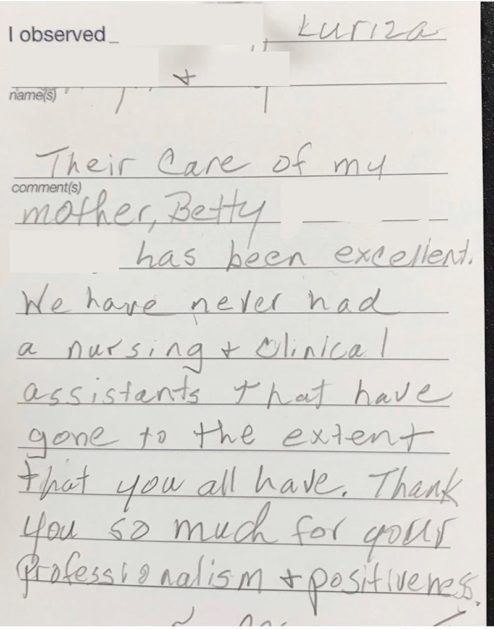 I observed Kuriza
+
name(s)
Their Care of my
comment(s)
mother, Betty
has been excellent.
We have never had
a nursing + Clinical
assistants that have
gone to the extent
that you all have. Thank
you so much for your
Professionalism + positiveness.